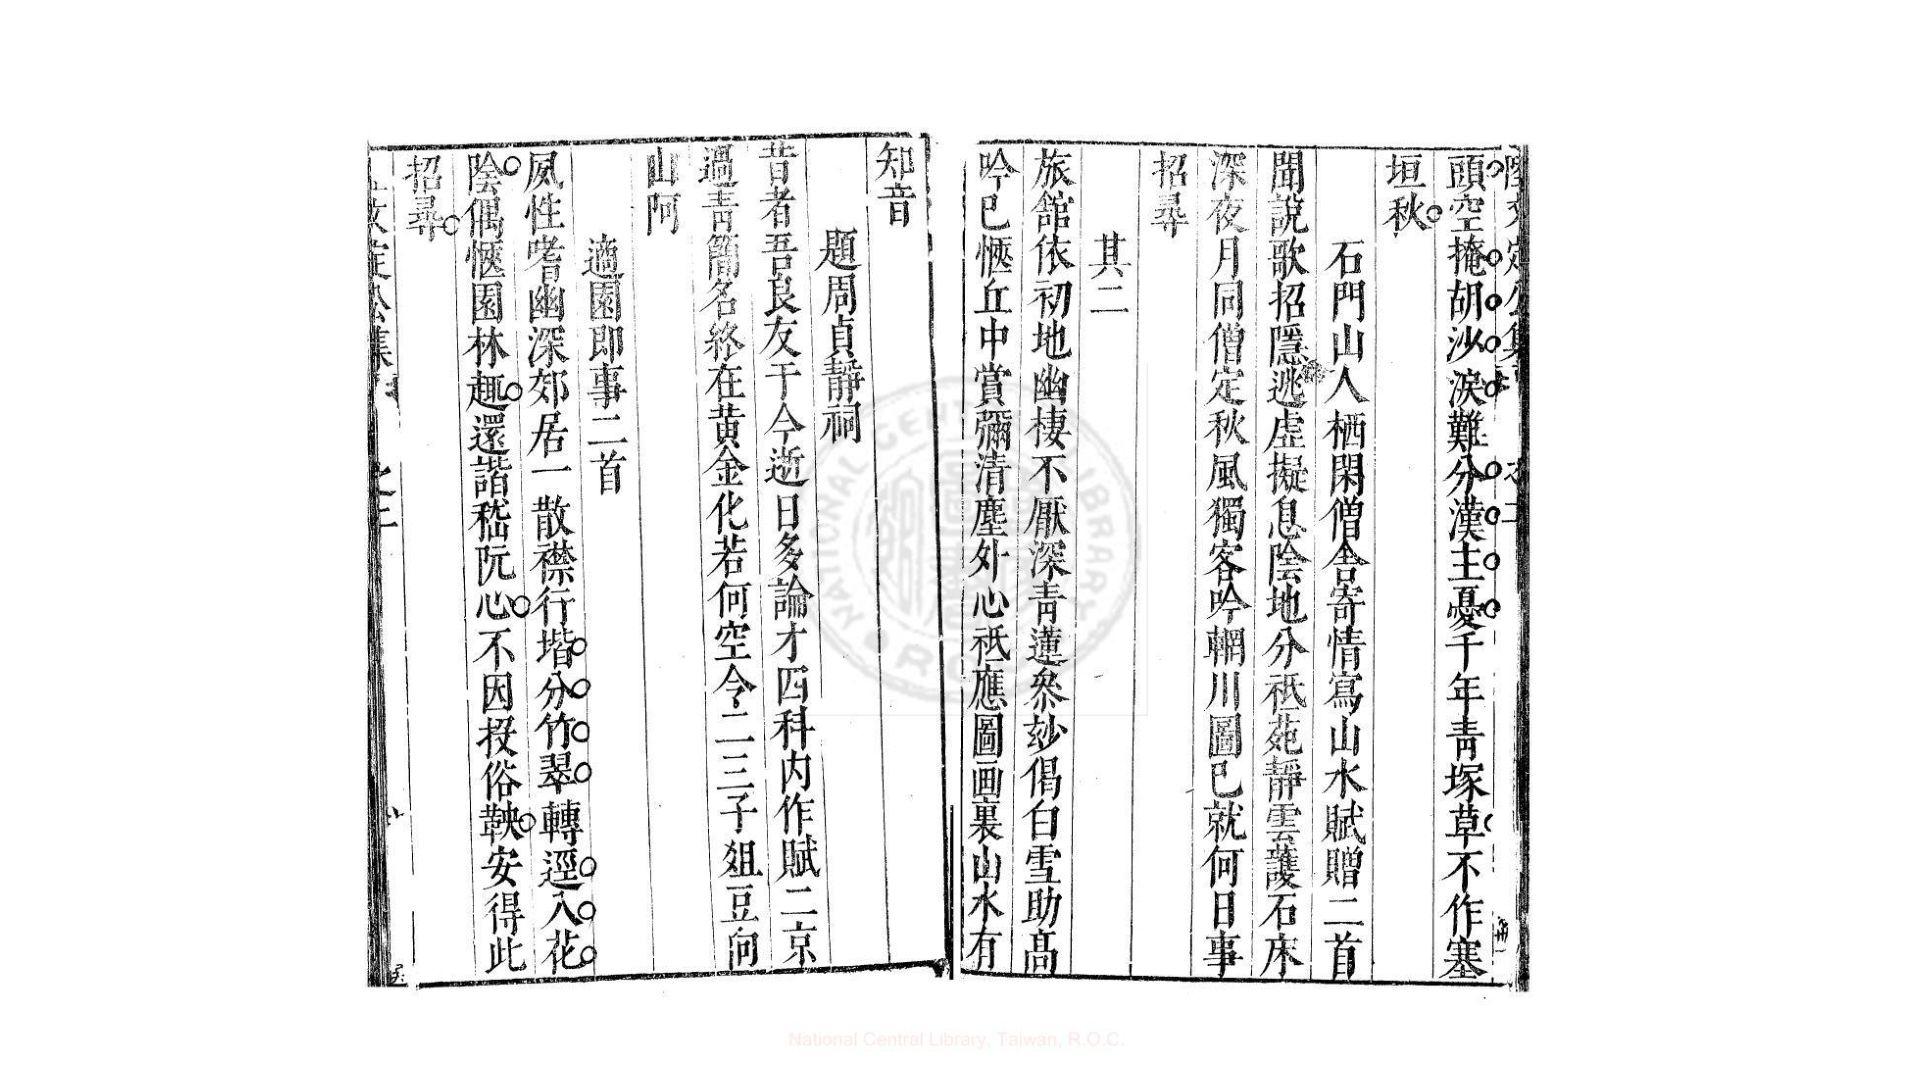 頭空掩胡沙淚難分漢主憂千年青塚草不作塞
垣秋
石門山人栖閑僧舍寄情寫山水賦贈二首
聞說歌招隱逃虛擬息陰地分祇苑靜雲護石床
深夜月同僧定秋風獨客吟輞川圖已就何日事
招尋
其二
旅舘依初地幽棲不厭深青蓮叅玅偈白雪助高
吟已愜丘中賞彌清塵外心祗應圖画裏山水有
知音
題周貞靜祠
昔者吾良友于今逝日多論才四科內作賦二京
過青簡名終在黃金化若何空令二三子俎豆向
山阿
適園即事二首
夙性嗜幽深郊居一散襟行堦分竹翠轉逕入花
陰偶愜園林趣還諧嵇阮心不因投俗鞅安得此
招尋
National Central Library, Taiwan, R.O.C.